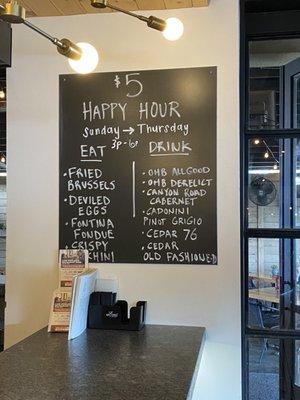 $5
HAPPY HOUR
Sunday → Thursday
3p-6p
EAT
• FRIED
BRUSSELS
• DEVILED
EGGS
• FONTINA
FONDUE
• CRISPY
DRINK
• OHB ALLGOOD
• OHB DERELICT
• CANYON ROAD
CABERNET
• CAPONINI
PINOT GRIGIO
• CEDAR 76
• CEDAR
OLD FASHIONED